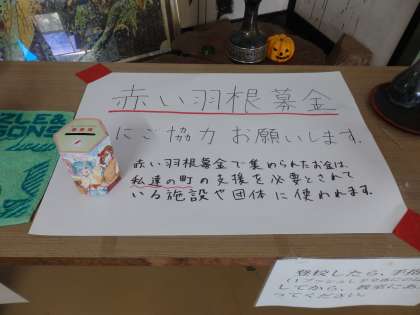 赤い羽根募金
にご協力お願いします。
赤い羽根募金で集められたお金は、
私達の町の支援を必要とされて
いる施設や団体に使われます。
ZLE&
SONS
登校したら、手指
してから、教室に
てください